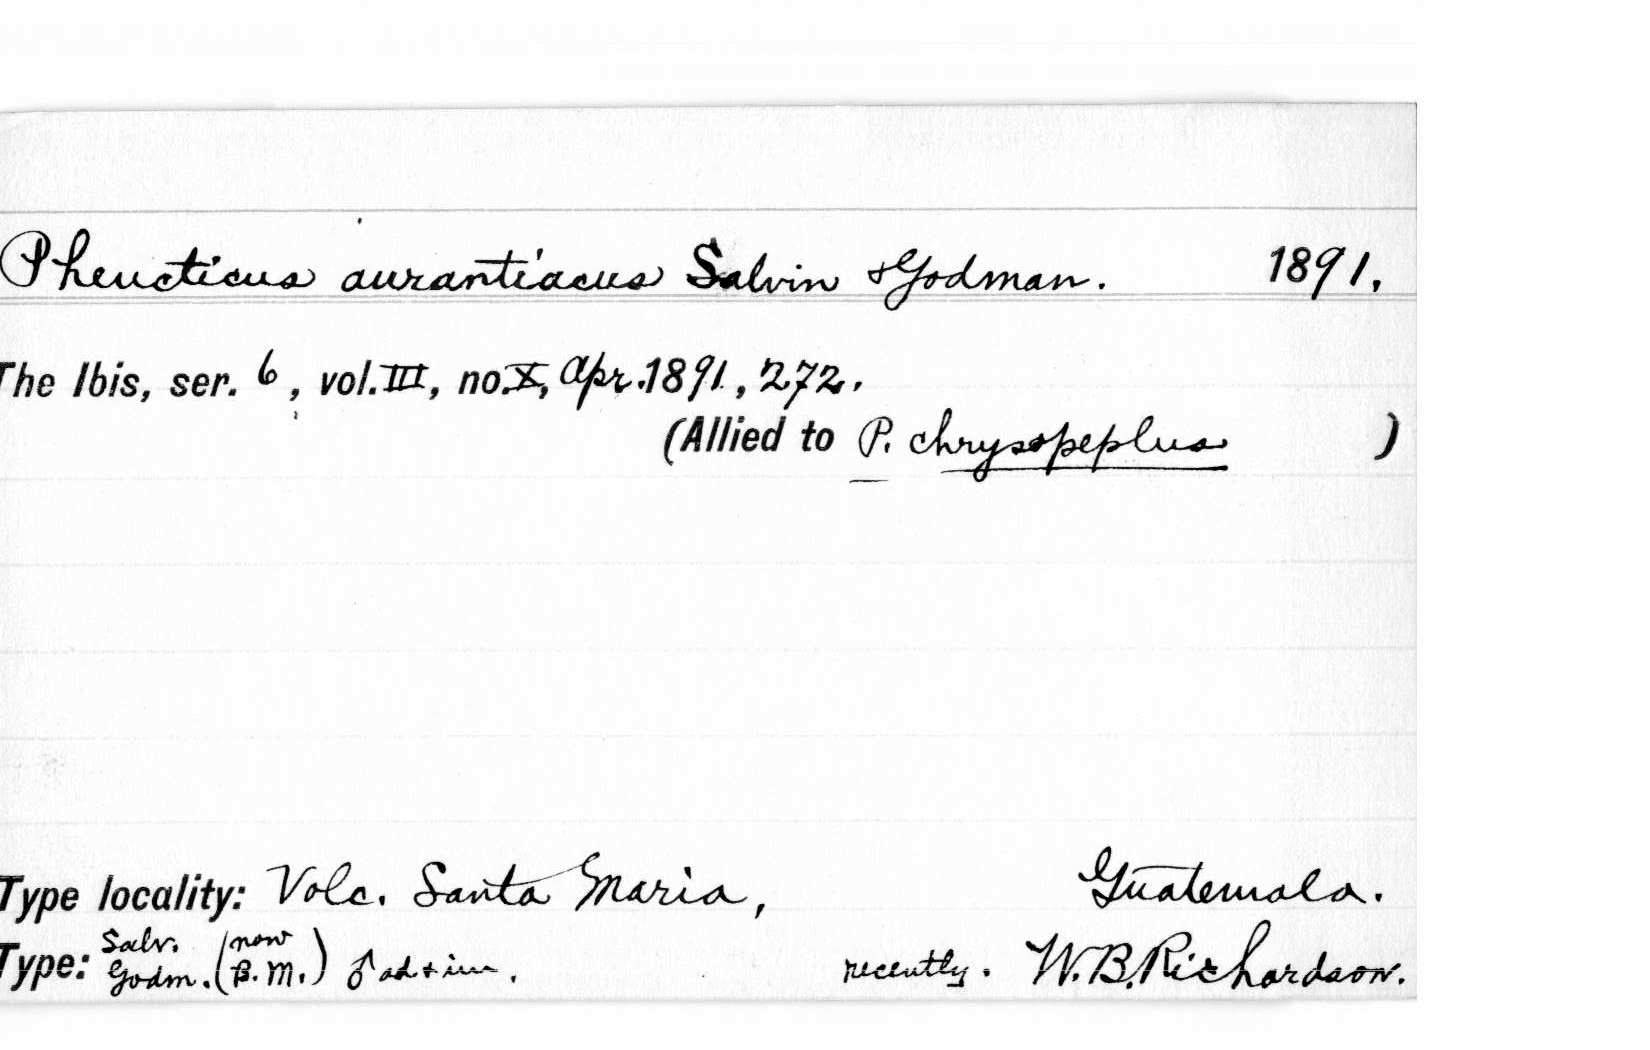 Pheucticus aurantiacus Salvin & Godman. 1891.
The Ibis, ser. 6, vol. III, no. X, Apr. 1891, 272.
(Allied to P. chrysopeplus )
Type locality: Volc. Santa Maria, Guatemala.
Type: Salv. Godm. (now B. M.) ♂ ad + im. recently. W. B. Richardson.